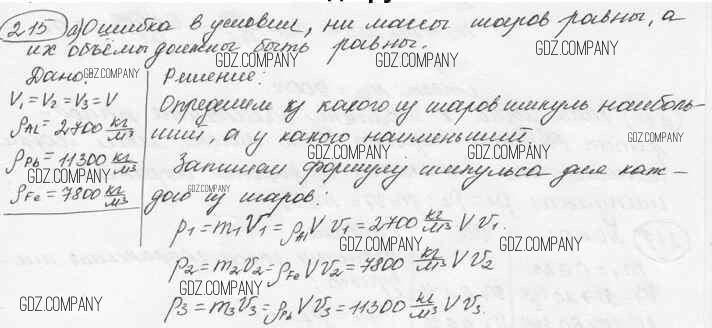 215 а) Ошибка в условии, ни массы шаров равны, а
их объёмы должны быть равны.
GDZ.COMPANY GDZ.COMPANY GDZ.COMPANY
Дано: Решение:
GDZ.COMPANY
V₁ = V₂ = V₃ = V
ρAl = 2700 кг/м³
ρPb = 11300 кг/м³
GDZ.COMPANY
ρFe = 7800 кг/м³
Определим у какого из шаров импульс наиболь-
ший, а у какого наименьший.
GDZ.COMPANY
GDZ.COMPANY GDZ.COMPANY
Запишем формулу импульса для каж-
GDZ.COMPANY
дого из шаров:
p₁ = m₁V₁ = ρAl V v₁ = 2700 кг/м³ V v₁.
GDZ.COMPANY GDZ.COMPANY
p₂ = m₂v₂ = ρFe V v₂ = 7800 кг/м³ V v₂
GDZ.COMPANY GDZ.COMPANY GDZ.COMPANY
p₃ = m₃v₃ = ρPb V v₃ = 11300 кг/м³ V v₃.